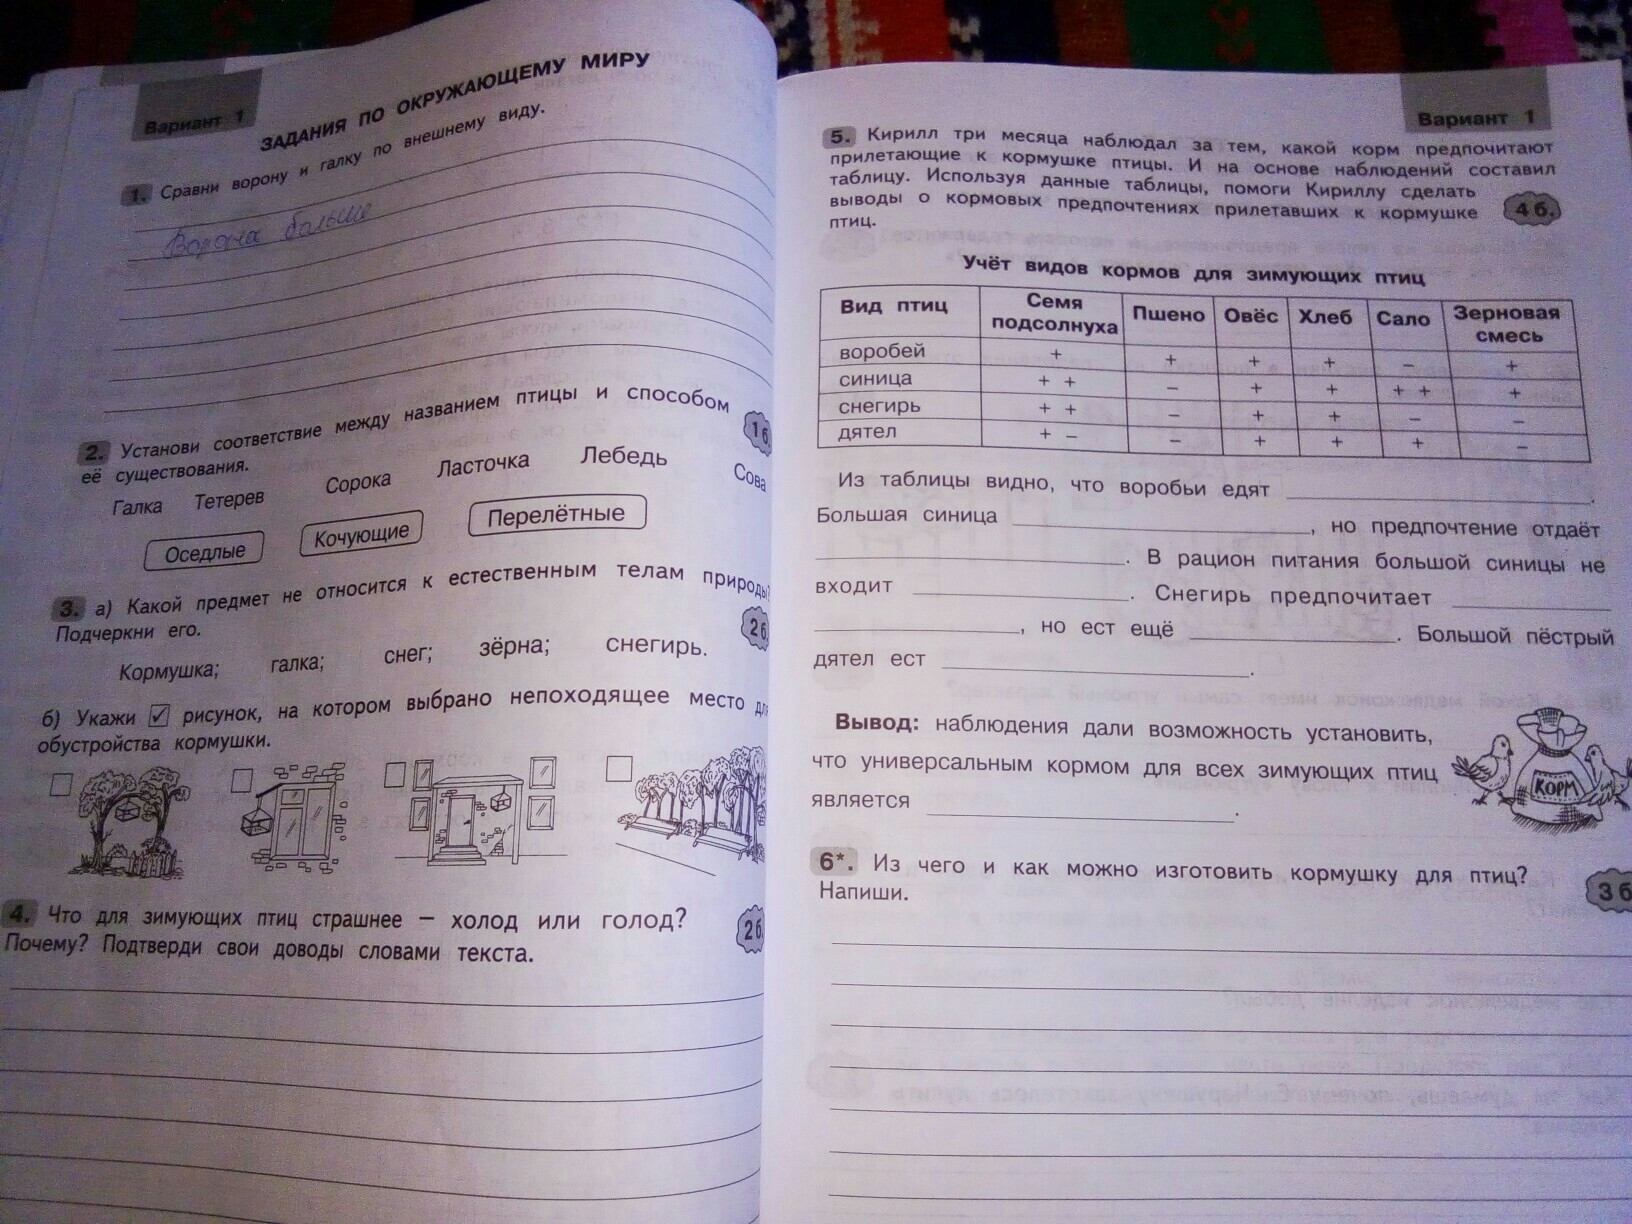 Вариант 1
ЗАДАНИЯ ПО ОКРУЖАЮЩЕМУ МИРУ
1. Сравни ворону и галку по внешнему виду.
Ворона больше
2. Установи соответствие между названием птицы и способом
её существования.
1 б.
Галка Тетерев Сорока Ласточка Лебедь Сова
Оседлые Кочующие Перелётные
3. а) Какой предмет не относится к естественным телам природы?
Подчеркни его.
2 б.
Кормушка; галка; снег; зёрна; снегирь.
б) Укажи ☑ рисунок, на котором выбрано непоходящее место для
обустройства кормушки.
4. Что для зимующих птиц страшнее – холод или голод?
Почему? Подтверди свои доводы словами текста.
2 б.
Вариант 1
5. Кирилл три месяца наблюдал за тем, какой корм предпочитают
прилетающие к кормушке птицы. И на основе наблюдений составил
таблицу. Используя данные таблицы, помоги Кириллу сделать
выводы о кормовых предпочтениях прилетавших к кормушке
птиц.
4 б.
Учёт видов кормов для зимующих птиц
Вид птиц Семя подсолнуха Пшено Овёс Хлеб Сало Зерновая смесь
воробей + + + + – +
синица + + – + + + + +
снегирь + + – + + – –
дятел + – – + + + –
Из таблицы видно, что воробьи едят ____.
Большая синица ____, но предпочтение отдаёт
____. В рацион питания большой синицы не
входит ____. Снегирь предпочитает ____
____, но ест ещё ____. Большой пёстрый
дятел ест ____.
Вывод: наблюдения дали возможность установить,
что универсальным кормом для всех зимующих птиц
является ____.
КОРМ
6*. Из чего и как можно изготовить кормушку для птиц?
Напиши.
3 б